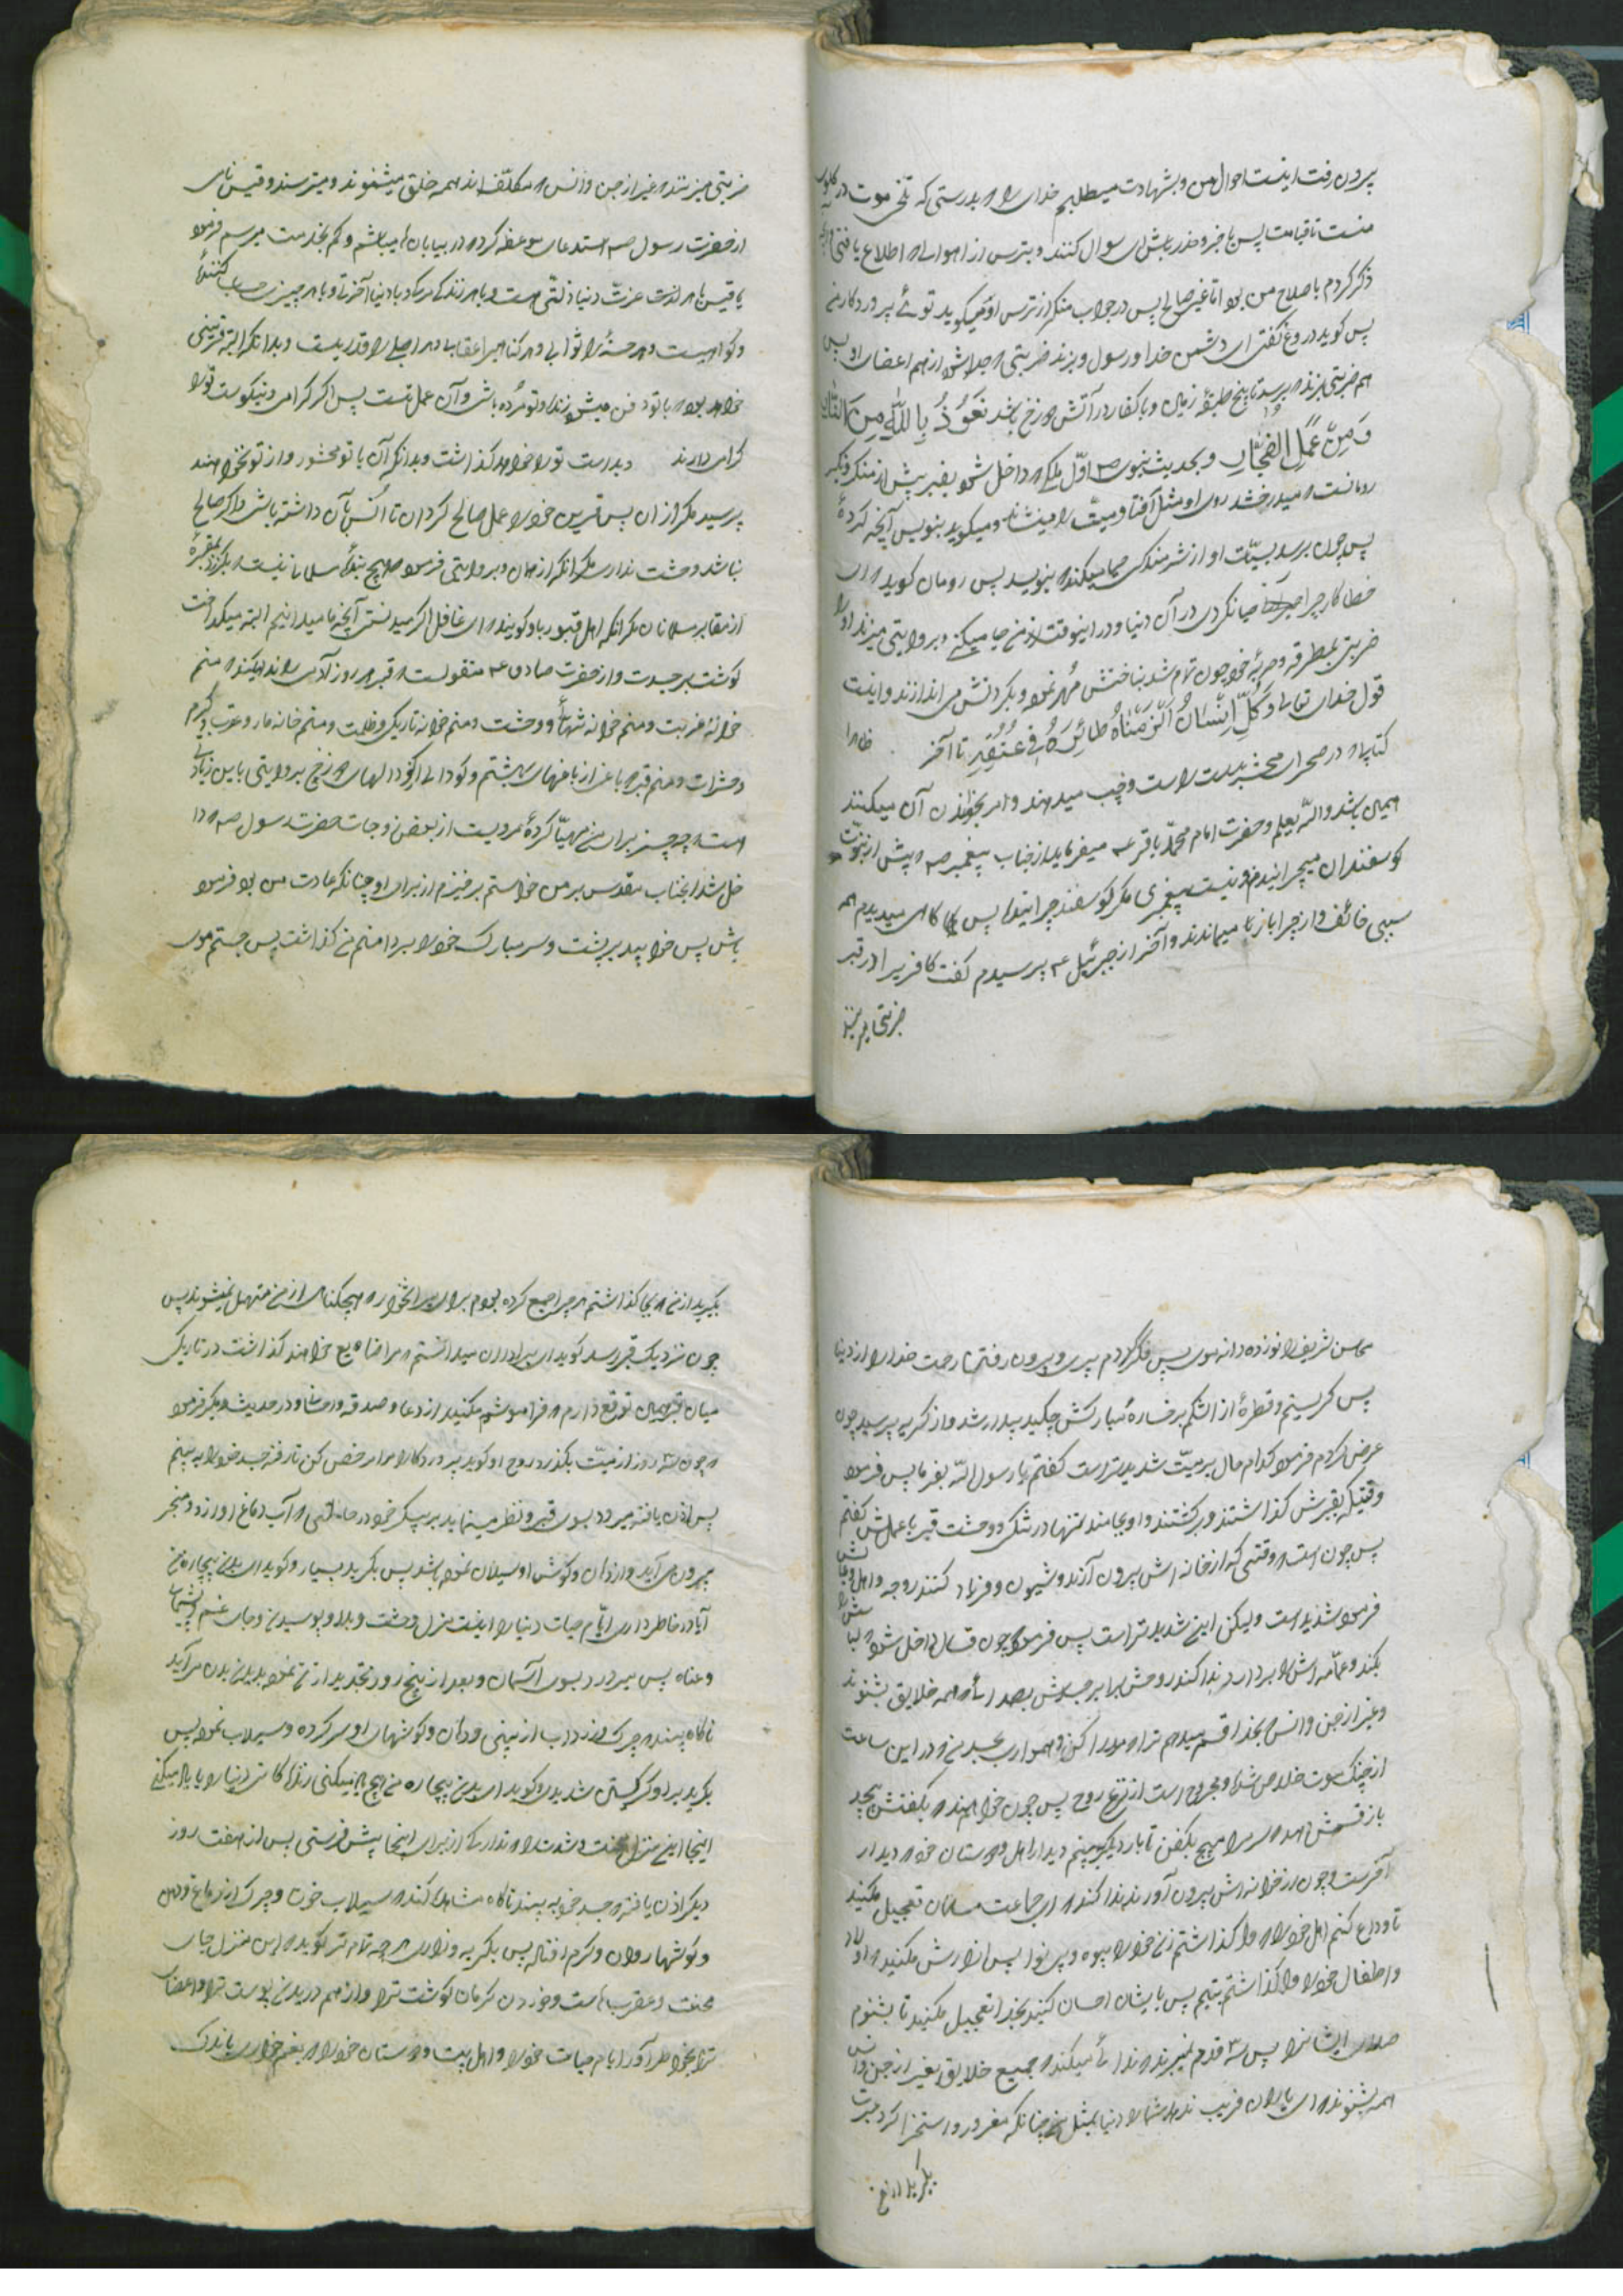 پرون رفت اینست احوال من و بشهادت میطلبم خدای را ه بدرستی که تلخی موت در کلوی
منست تا قیامت پس باخبر و حذر باش ای سوال کننده و بترس از اهوالی ه اطلاع یافتی
ذکر کردم با صلاح من بود اما غیر صالح پس در جواب منکر از ترس او میکوید توئی پروردکار من
پس کوید دروغ کفتی ای دشمن خدا و رسول و بزند ضربتی ه جدا شود از هم اعضای او پس
هم ضربتی بزند ه برسد تا پنج طبقه زمین و با کفار در آتش دوزخ باشد نَعوُذُ بِاللهِ مِنَ النّارِ
وَمِنْ عَمَلِ الفُجّارِ و بحدیث نبوی ص اوّل ملکی ه داخل شود بقبر پیش از منکر و نکیر
رومانست ه میدرخشد روی او مثل آفتاب و میّت را مینشاند و میکوید بنویس آنچه کردهٔ
پس چون برسد بسیّئات او از شرمندکی حیا میکند ه بنویسد پس رومان کوید ه ای
خطاکار چرا حیا نکردی در آن دنیا و در اینوقت از من حیا میکنی و بروایتی میزند او را
ضربتی بمطرقه و حربهٔ خود چون تمام شد بناخنش مُهر نمود و بکردنش می اندازند و اینست
قول خدای تعالی وَکُلَّ اِنْسانٍ اَلْزَمْناهُ طائِرَهُ فی عُنُقِهِ تا آخر . ظاهرا
کتابی ه در صحرای محشر بدست راست و چپ میدهند و امر بخواندن آن میکنند
همین باشد والله یعلم و حضرت امام محمّد باقر ع میفرماید از جناب پیغمبر ص ه پیش از نبوّت
کوسفندان میچرانیدم و نیست پیغمبری مکر کوسفند چرانیده پس کاه کاهی میدیدم همه
سببی خائف و از چرا باز میماندند و آخر از جبرئیل ع پرسیدم کفت کافر را در قبر
ضربتی میزنند
ضربتی میزنند ه غیر از جن و انس ه مکلّف اند همه خلق میشنوند و میترسند و قیس نامی
از حضرت رسول ص استدعای موعظه کرد ه در بیابان میباشم و کم بخدمت میرسم فرمود
یا قیس با هر عزت دنیا ذلّتی هست و با هر زندکی مرک و با دنیا آخرت و با هر چیزی حساب کنندهٔ
و کواهیست و هر حسنهٔ را ثوابی و هر کناهیرا عقابی و هر اجلی را قدریست و بدانکه البته قرینی
خواهد بود ه با تو دفن میشود زنده و تو مرده باشی و آن عمل تست پس اکر کرامی و نیکوست تو را
کرامی دارند و بد است تو را خواهد کذاشت و بدانکه آن با تو محشور و از تو نخواهند
پرسید مکر از آن پس قرین خود را عمل صالح کردان تا اُنس بآن داشته باشی و اکر صالح
نباشد وحشت نداری مکر آنکه از همان و بروایتی فرمود ه هیچ بندهٔ مسلمان نیست ه بکذرد بمقبرهٔ
از مقابر مسلمانان مکر آنکه اهل قبور باو کویند ه ای غافل اکر میدانستی آنچه ما میدانیم البته میکداخت
کوشت بر جسدت و از حضرت صادق ع منقولست ه قبر هر روز آدمی را ندا میکند ه منم
خوانهٔ غربت و منم خوانهٔ تنهائی و وحشت و منم خوانهٔ تاریکی و ظلمت و منم خانه مار و عقرب و کرم
و حشرات و منم قبر ه باغی از باغهای بهشتم و کودالی از کودالهای دوزخ بروایتی باین زیادتی
است ه چه چیز برای من مهیّا کردهٔ مرویست از بعض زوجات حضرت رسول ص ه دا
خل شد آنجناب مقدس بر من خواستم برخیزم از برای او چنانکه عادت من بود فرمود
باش پس خوابید بر پشت و سر مبارک خود را بر دامنم کذاشت پس جستم موی
محاسن شریفش را نوزده دانه موی پس فکر کردم پیری و پیرون رفتن رحمت خدا را از دنیا
پس کریستم و قطرهٔ از اشکم بر رخسارهٔ مبارکش چکید پیدار شد و از کریه پرسید چون
عرض کردم فرمود کدام حال بر میّت شدیدتر است کفتم یا رسول الله بفرما پس فرمود
وقتیکه بقبرش کذاشتند و برکشتند و او بماند تنها در تنکی و وحشت قبر با عملش کفتم
پس چون است ه وقتی که از خانه اش پرون آرند و شیون و فریاد کنند زوجه و اهل و
فرمود شدید است ولیکن این شدیدتر است پس فرمود چون غسال داخل شود ه لباسش را
بکند و عمّامه اش را بردارد ندا کند روحش برابر جسدش بصدائی ه همه خلایق بشنوند
و غیر از جن و انس بخدا قسم میدهم ترا ه مدارا کن و هموار بجسد من ه در این ساعت
از چنک موت خلاص شده و مجروح است از نزع روح پس چون خواهند ه بکفنش پیچند
باز قسمش دهد ه سر مرا مپیچ بکفن تا بار دیکر ببینم دیدار اهل و دوستان خود ه دیدار
آخرست و چون از خوانه اش پیرون آورند ندا کند ه ای جماعت مسلمانان تعجیل مکنید
تا وداع کنم اهل خود را ه وا کذاشتم زن خود را بیوه و بی نوا پس آزارش مکنید ه اولاد
و اطفال خود را وا کذاشتم یتیم پس بایشان احسان کنید بخدا تعجیل مکنید تا بشنوم
صدای ایشانرا پس سه قدم نمیبرند ه ندائی میکند ه جمیع خلایق بغیر از جن و انس
همه بشنوند ه ای یاران فریب ندهد شما را دنیا بمثل من چنانکه مغرور و استهزا کرد عبرت
بکیرید از من
بکیرید از من ه بجا کذاشتم هر چه را جمع کرده بودم برای میراثخوار ه هیچکناهی از من متحمل نمیشوند پس
چون نزدیک قبر رسد کوید ای برادران میدانستم ه مرا ضایع خواهند کذاشت در تاریکی
میان قبر همین توقع دارم ه فراموشم مکنید از دعا و صدقه و احسان و در حدیث دیکر فرمود
ه چون سه روز از میّت بکذرد روح او کوید پروردکارا مرا مرخص کن تا رفته جسد خود را به بینم
پس اذن یافته میرود بسوی قبر و نظر مینماید بر پیکر خود در حالتی ه آب دماغ او از دو منخر
پیرون می آید و از دهان و کوش او سیلان نموده باشد پس بکرید بسیار و کوید ای بدن بیچاره من
آیا در خاطر داری ایّام حیات دنیا را اینست منزل وحشت و بلا و پوسیدن و جای غم و پشیمانی
و عناه پس میرود بسوی آسمان و بعد از پنج روز تجدید اذن نموده بدیدن بدن می آید
ناکاه بیند ه چرک و زرداب از پینی و دهان و کوشهای او سر کرده و سیلاب نموده پس
بکرید بر او کریستن شدیدی و کوید ای بدن بیچاره من هیچ یاد میکنی زندکانی دنیا را یا یاد میکنی
اینجا این منزل محنت و شدت را ه نداری مکر از برای اینجا پیش فرستی پس از هفت روز
دیکر اذن یافته ه جسد خود به بیند ناکاه مشاهده کند ه سیلاب خون و چرک از دماغ و دهن
و کوشها روان و کرم افتاده پس بکریه و زاری هر چه تمام تر کوید ه این منزل جای
محنت و عقرب است و خوردن کرمان کوشت ترا و از هم دریدن پوست ترا و اعضای
ترا بخواطر آور ایام حیات خود را و اهل بیت و دوستان خود را ه بغمخواری باندک